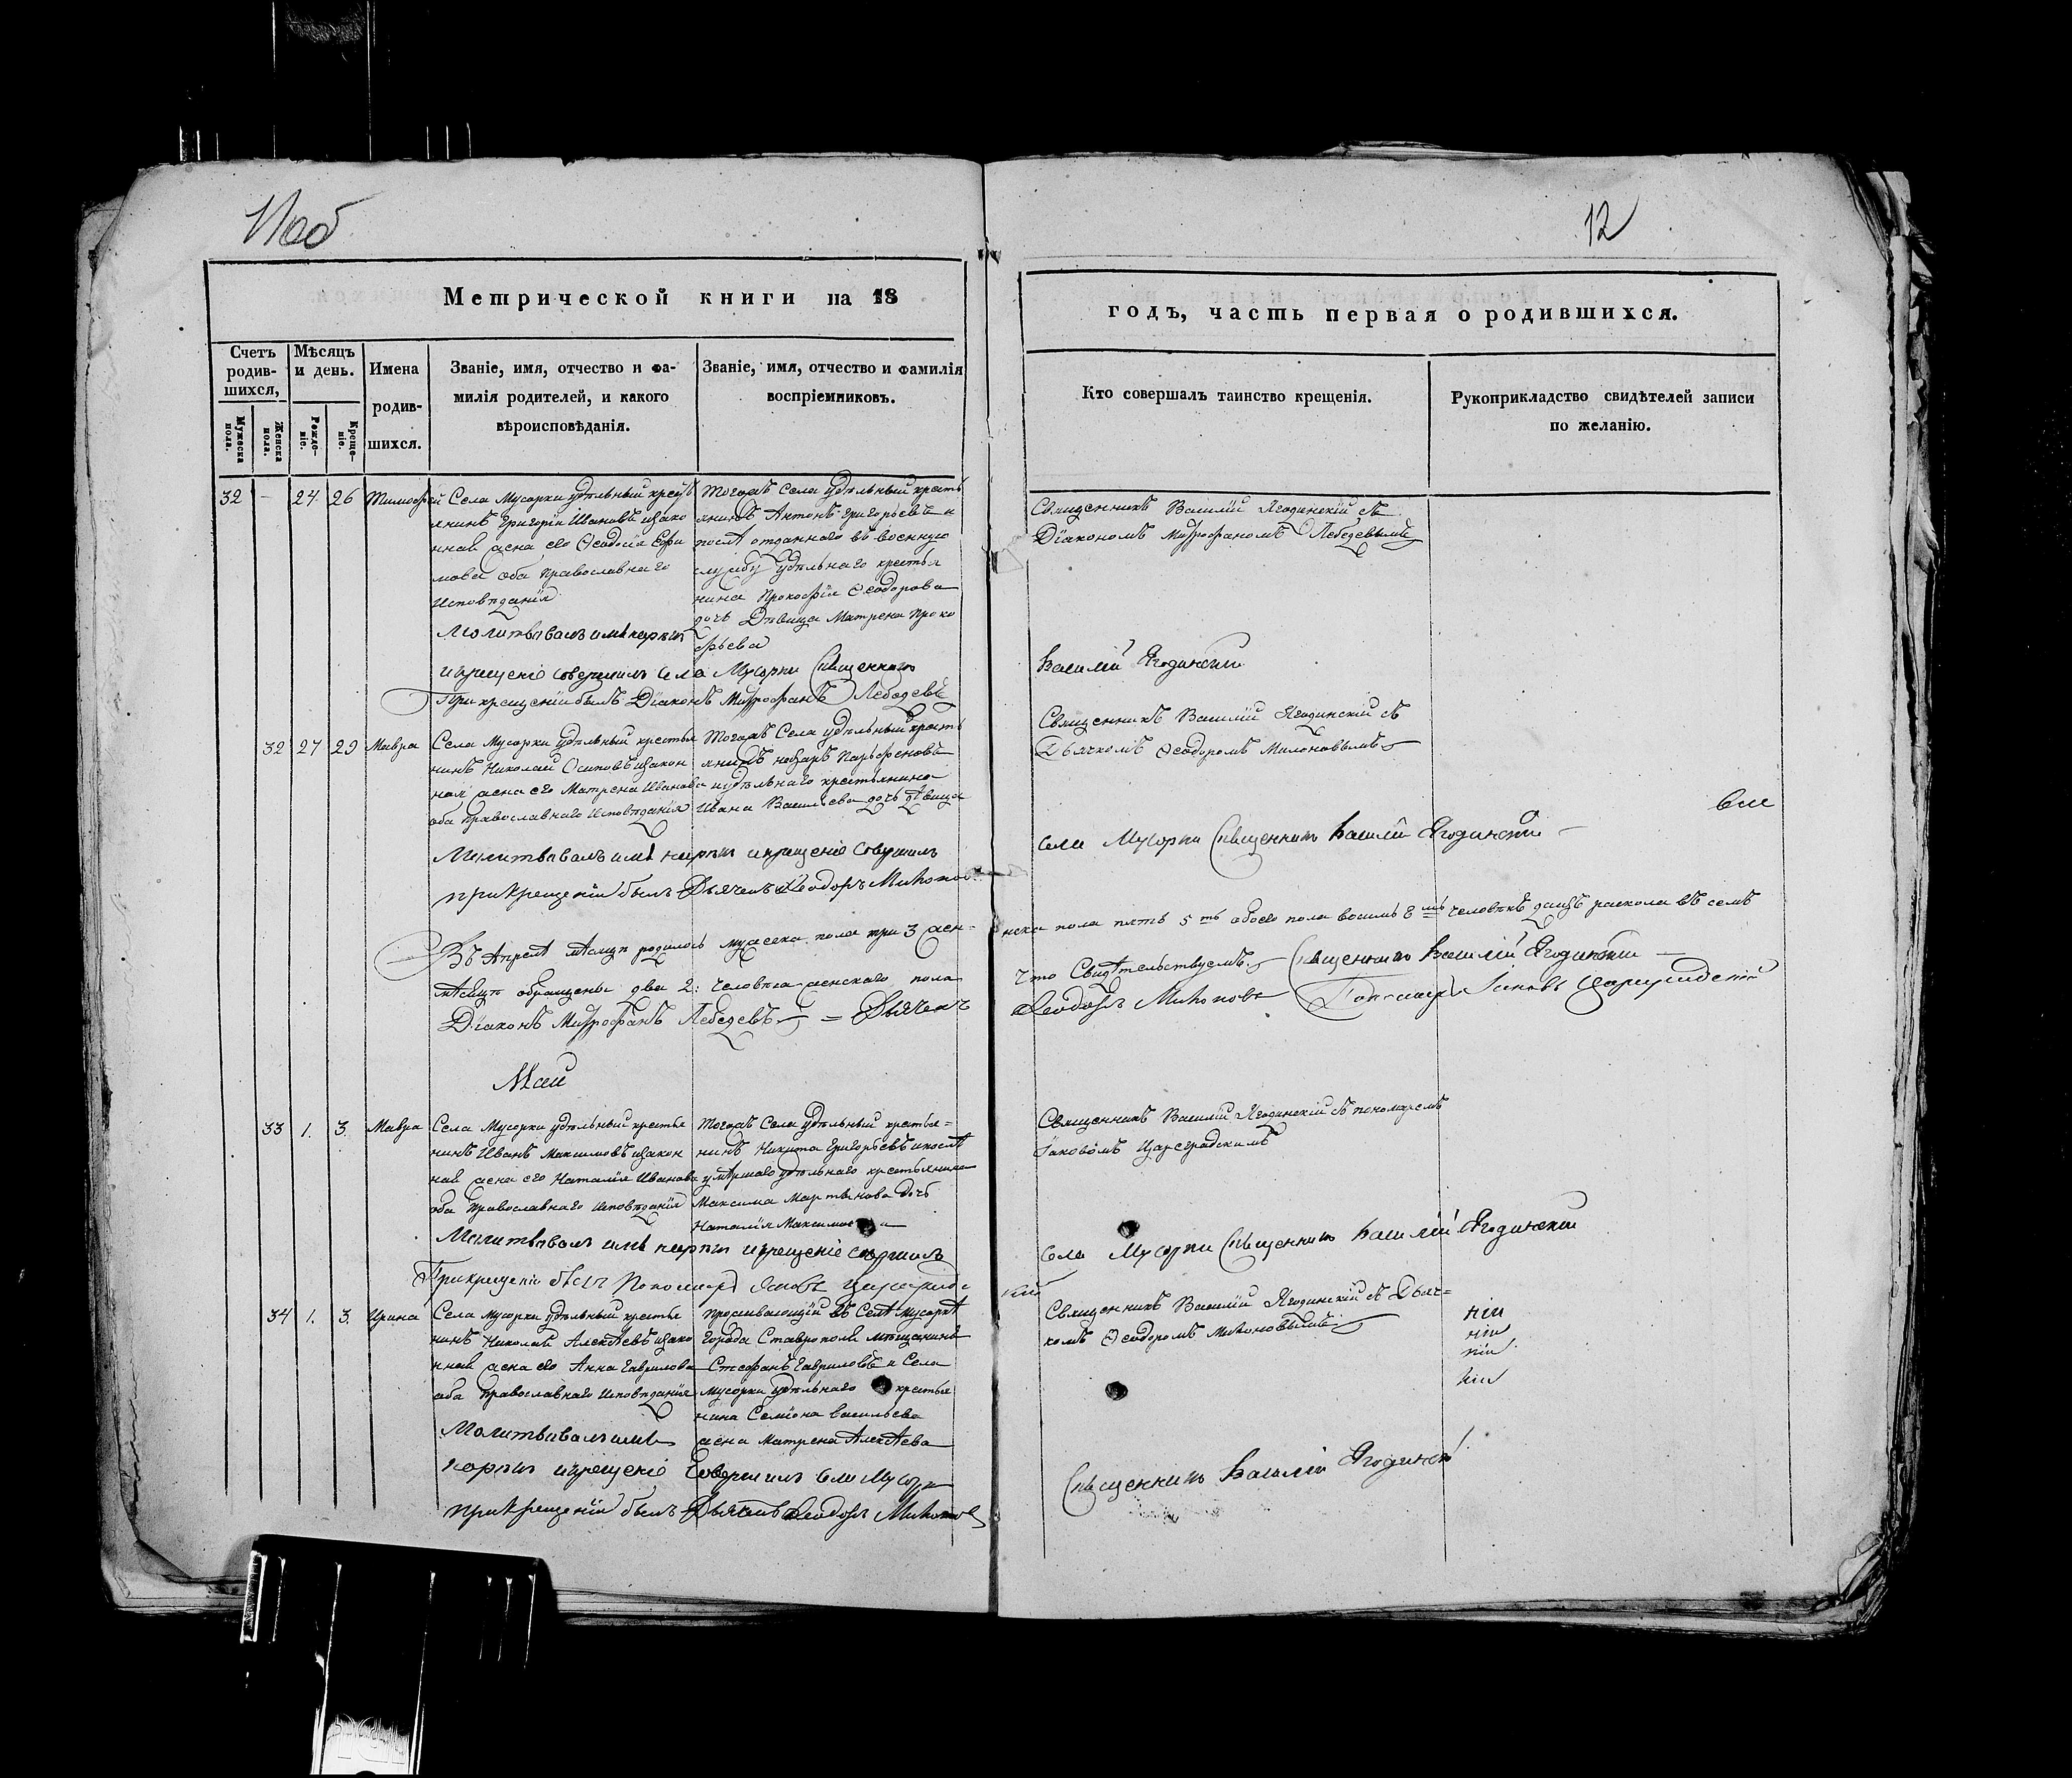 12
Метрической книги на 18
годъ, часть первая о родившихся.
Счетъ родив-шихся,
Мѣсяцъ и день.
Имена родив-шихся.
Званіе, имя, отчество и фа-
милія родителей, и какого
вѣроисповѣданія.
Званіе, имя, отчество и фамилія
воспріемниковъ.
Мужеска пола.
Женска пола.
Рожде-ніе.
Креще-ніе.
Кто совершалъ таинство крещенія.
Рукоприкладство свидѣтелей записи
по желанію.
32 — 24 26 Тимофей
Села Мусорки удѣльный крестъ
янинъ Григорій Ивановъ изако
нная жена его Ѳеодосія Ефи
мова оба православнаго
Исповѣданія
Тогожъ села удѣльный кресть
янинъ Антонъ Григорьевъ и
послѣ отданнаго въ военную
службу удѣльнаго крестья
нина Прокофія Ѳеодорова
дочь Дѣвица Матрена Проко
фьева
Священникъ Василій Ягодинскій съ
Діакономъ Митрофаномъ Лебедевымъ
Молитвовалъ имя нарекъ
икрещеніе совершилъ села Мусорки Священникъ
Василій Ягодинскій
При крещеніи былъ Діаконъ Митрофанъ Лебедевъ
32 27 29 Мавра
Села Мусорки удѣльный крестья
нинъ Николай Осиповъ изакон
ная жена его Матрена Иванова
оба православнаго Исповѣданія
Тогожъ Села удѣльный кресть
янинъ Назаръ Парѳеновъ
иудѣльнаго крестьянина
Ивана Васильева дочь дѣвица
Священникъ Василій Ягодинскій съ
Дьячкомъ Ѳеодоромъ Милоновымъ
Молитвовалъ имя нарекъ икрещеніе совершилъ
села Мусорки Священникъ Василій Ягодинскій
прикрещеніи былъ Дьячекъ Ѳеодоръ Милонов
Въ Апрелѣ мѣсяцѣ родилось мужеска пола три 3 жен-
нска пола пять 5ть обоего пола восимь 8мь человѣкъ даизъ раскола въ семъ
мѣсяцѣ обращены два 2: человѣка женскаго пола
что Свидѣтельствуемъ Священникъ Василій Ягодинскій
Діаконъ Митрофанъ Лебедевъ = Дьячекъ
Ѳеодоръ Милоновъ Пономарь Іаковъ Цареградскій
Маій
33 1. 3. Мавра
Села Мусорки удѣльный крестья
нинъ Иванъ Максимовъ изакон
ная жена его Наталія Иванова
оба православнаго Исповѣданія
Тогожъ Села удѣльный крестья=
нинъ Никита Григорьевъ ипослѣ
умѣршаго удѣльнаго крестьянина
Максима Мартынова дочь
Наталія Максимова
Священникъ Василій Ягодинскій съ пономаремъ
Іаковомъ Цареградскимъ
Молитвовалъ имя нарекъ икрещеніе совершилъ
села Мусорки Священникъ Василій Ягодинскій
Прикрещеніи былъ Пономарь Яковъ Цареградс
кій
34 1. 3. Ирина
Села Мусорки удѣльный крестья
нинъ Николай Алексѣевъ изако
нная жена его Анна Гаврилова
оба православнаго Исповѣданія
Проживающій въ Селѣ Мусоркѣ
города Ставрополя мѣщанинъ
Стефанъ Гавриловъ и Села
Мусорки удѣльнаго крестья
нина Семіона Васильева
жена Матрена Алексѣева
Священникъ Василій Ягодинскій съ Дьяч=
комъ Ѳеодоромъ Милоновымъ
Молитвовалъ имя
нарекъ икрещеніе совершилъ села Мусорки
Священникъ Василій Ягодинскій
прикрещеніи былъ Дьячекъ Ѳеодоръ Милонов